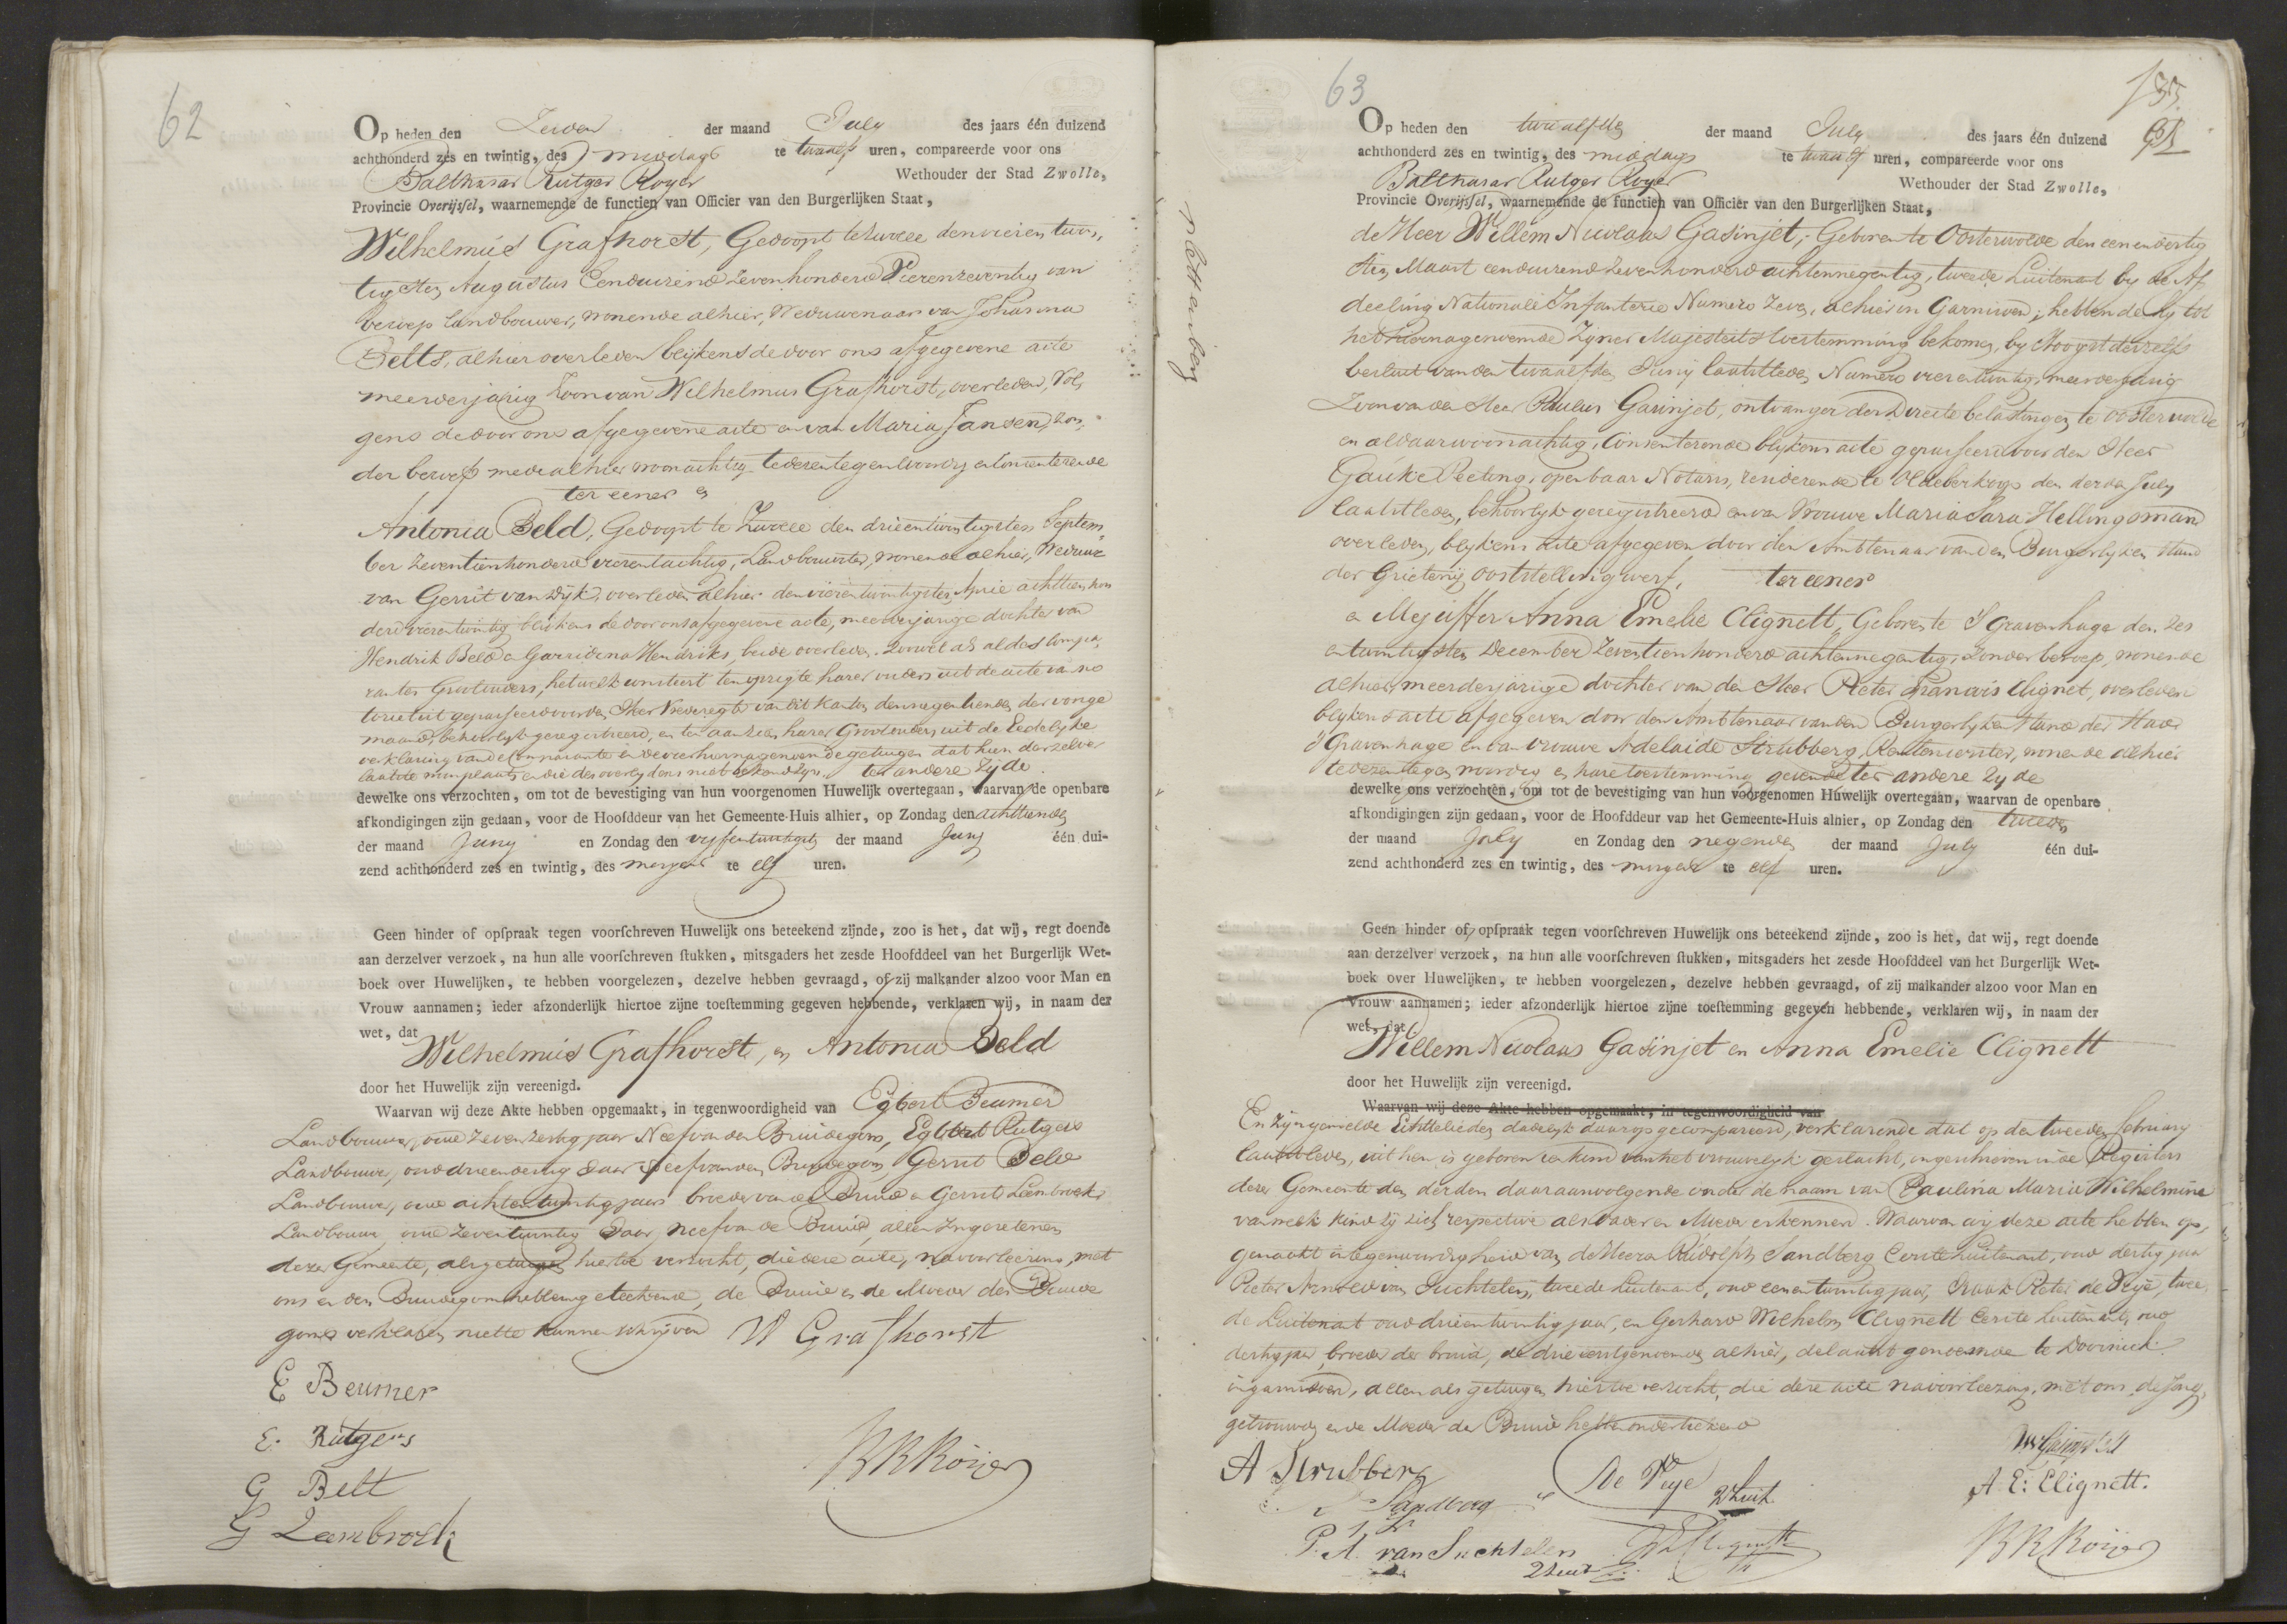 62
Op heden den Zeven der maand July des jaars één duizend
achthonderd zes en twintig, des middags te twaalf uren, compareerde voor ons
Balthasar Rutger Royer Wethouder der Stad Zwolle,
Provincie Overijssel, waarnemende de functien van Officier van den Burgerlijken Staat,
Wilhelmus Grafhorst, Gedoopt te Zwolle den vieren twin,
tigsten Augustus Eenduizend Zevenhonderd Vierenzeventig van
beroep Landbouwer, wonende alhier, Weduwenaar van Johanna
Belts, alhier overleden blijkens de door ons afgegevene acte
meerderjarig Zoon van Wilhelmus Grafhorst, overleden, Vol,
gens de door ons afgegevene acte en van Maria Jansen, zon,
der beroep mede alhier woonachtig te dezen tegenwoordig en consenterende
ter eener en
Antonia Beld, Gedoopt te Zwolle den drieentwintigsten Septem
ber Zeventienhonderd vierentachtig, Landbouwster, wonende alhier, Weduwe
van Gerrit van Dijk, overleden alhier den vierentwintigsten April achttien hon
derd vierentwintig blijkens de door ons afgegevene acte, meerderjarige dochter van
Hendrik Beld en Garridina Hendriks, beide overleden. Zoowel als al des Compa,
rantes Grootouders, hetwelk consteert ten opzigte harer ouders uit de acte van no
torieteit gepasseerd voor den Heer Vrederegter van dit Kanton den negentienden der vorige
maand, behoorlijk geregistreerd, en ten aanzien harer Grootouders uit de Eedelijke
verklaring van de Comparante en de vier hiernagenoemde getuigen dat hun derzelver
laatste woonplaats en die des overlydens niet bekend zyn. ter andere Zijde
dewelke ons verzochten, om tot de bevestiging van hun voorgenomen Huwelijk overtegaan, waarvan de openbare
afkondigingen zijn gedaan, voor de Hoofddeur van het Gemeente-Huis alhier, op Zondag den achttienden
der maand Juny en Zondag den vyfentwintigsten der maand Juny één dui-
zend achthonderd zes en twintig, des morgens te elf uren.
Geen hinder of opspraak tegen voorschreven Huwelijk ons beteekend zijnde, zoo is het, dat wij, regt doende
aan derzelver verzoek, na hun alle voorschreven stukken, mitsgaders het zesde Hoofddeel van het Burgerlijk Wet-
boek over Huwelijken, te hebben voorgelezen, dezelve hebben gevraagd, of zij malkander alzoo voor Man en
Vrouw aannamen; ieder afzonderlijk hiertoe zijne toestemming gegeven hebbende, verklaren wij, in naam der
wet, dat
Wilhelmus Grafhorst, en Antonia Beld
door het Huwelijk zijn vereenigd.
Waarvan wij deze Akte hebben opgemaakt, in tegenwoordigheid van Egbert Beumer
Landbouwer, oud Zevenzestig jaar Neef van den Bruidegom, Egbert Rutgers
Landbouwer, oud drieendertig Jaar Neef van den Bruidegom, Gerrit Beld
Landbouwer, oud achtentwintig jaar broeder van de Bruid en Gerrit Leembroek
Landbouwer, oud Zeventwintig Jaar, neef van de Bruid, allen Ingezetenen
dezer Gemeente, als getuigen hiertoe verzocht, die deze acte, na voorlezing, met
ons en den Bruidegom hebben geteekend, de Bruid en de Moeder des Bruide
goms verklaren niet te kunnen schrijven W Grafhorst
E Beumer
E. Rutgers
G Belt
G Leembroek
BRRoijer
n blottenberg
63
135
Op heden den twaalfden der maand July des jaars één duizend
achthonderd zes en twintig, des middags te twaalf uren, compareerde voor ons
Balthasar Rutger Royer Wethouder der Stad Zwolle,
Provincie Overijssel, waarnemende de functien van Officier van den Burgerlijken Staat,
de Heer Willem Nicolaas Gasinjet, Geboren te Oosterwolde den eenendertig
sten Maart eenduizend Zevenhonderd achtennegentig, tweede Luitenant by de Af
deeling Nationale Infanterie Numero Zeven, alhier in Garnisoen; hebbende hy tot
het hiernagenoemde Zyner Majesteits toestemming bekomen, by Hoogstdeszelfs
besluit van den twaalfden Juny laatstleden Numero vierentwintig, meerderjarig
Zoon van den Heer Paulus Gasinjet, ontvanger der Directe belastingen te Oosterwolde
en aldaar woonachtig, Consenterende blijkens acte gepasseerd voor den Heer
Gauke Peeting, openbaar Notaris, residerende te Oldeberkoop den derden July
laatstleden, behoorlyk geregistreerd en van Vrouwe Maria Sara Hellingsman
overleden, blykens acte afgegeven door den Ambtenaar van den Burgerlyken Stand
der Grietenij Ooststellingwerf, ter eener
en Mejuffer Anna Emelie Clignett, Geboren te 'S Gravenhage den Zes
entwintigsten December Zeventienhonderd achtennegentig, Zonder beroep, wonende
alhier, meerderjarige dochter van den Heer Pieter Francois Clignet, overleden
blykens acte afgegeven door den Ambtenaar van den Burgerlyken Stand der Stad
'S Gravenhage en van vrouwe Adelaide Strubberg, Rentenierster, wonende alhier
te dezen tegenwoordig en hare toestemming gevende ter andere Zyde
dewelke ons verzochten, om tot de bevestiging van hun voorgenomen Huwelijk overtegaan, waarvan de openbare
afkondigingen zijn gedaan, voor de Hoofddeur van het Gemeente-Huis alhier, op Zondag den tweeden
der maand July en Zondag den negenden der maand July één dui-
zend achthonderd zes en twintig, des morgens te elf uren.
Geen hinder of opspraak tegen voorschreven Huwelijk ons beteekend zijnde, zoo is het, dat wij, regt doende
aan derzelver verzoek, na hun alle voorschreven stukken, mitsgaders het zesde Hoofddeel van het Burgerlijk Wet-
boek over Huwelijken, te hebben voorgelezen, dezelve hebben gevraagd, of zij malkander alzoo voor Man en
Vrouw aannamen; ieder afzonderlijk hiertoe zijne toestemming gegeven hebbende, verklaren wij, in naam der
wet, dat
Willem Nicolaas Gasinjet en Anna Emelie Clignett
door het Huwelijk zijn vereenigd.
Waarvan wij deze Akte hebben opgemaakt, in tegenwoordigheid van
En Zyn gemelde Echtelieden dadelyk daarop gecompareerd, verklarende dat op den tweeden february
laatstleden, uit hen is geboren een kind van het vrouwelyk geslacht, ingeschreven in de Registers
dezer Gemeente den derden daaraanvolgende onder de naam van Paulina Maria Wilhelmina
van welk kind zy zich respective als Vader en Moeder erkennen. Waarvan wij deze acte hebben op,
gemaakt in tegenwoordigheid van de Heeren Rudolph Sandberg Eerste Luitenant, oud dertig jaar
Pieter Arnold van Suchtelen, tweede Luitenant, oud eenentwintig jaar, Izaak Pieter de Veye, twee
de Luitenant oud drieentwintig jaar, en Gerhard Wilhelm Clignett Eerste Luitenant, oud
dertig jaar broeder der bruid, de drie eerstgenoemde alhier, de laatstgenoemde te Doornick
in garnisoen, allen als getuigen hiertoe verzocht, die deze acte na voorlezing, met ons, de Jong,
getrouwden en de Moeder der Bruid hebben onderteekend
A Strubberg
Sandberg
De Veye 2e Luit
P. A. van Suchtelen
2 Luit
A. E. Clignett.
BRRoijer